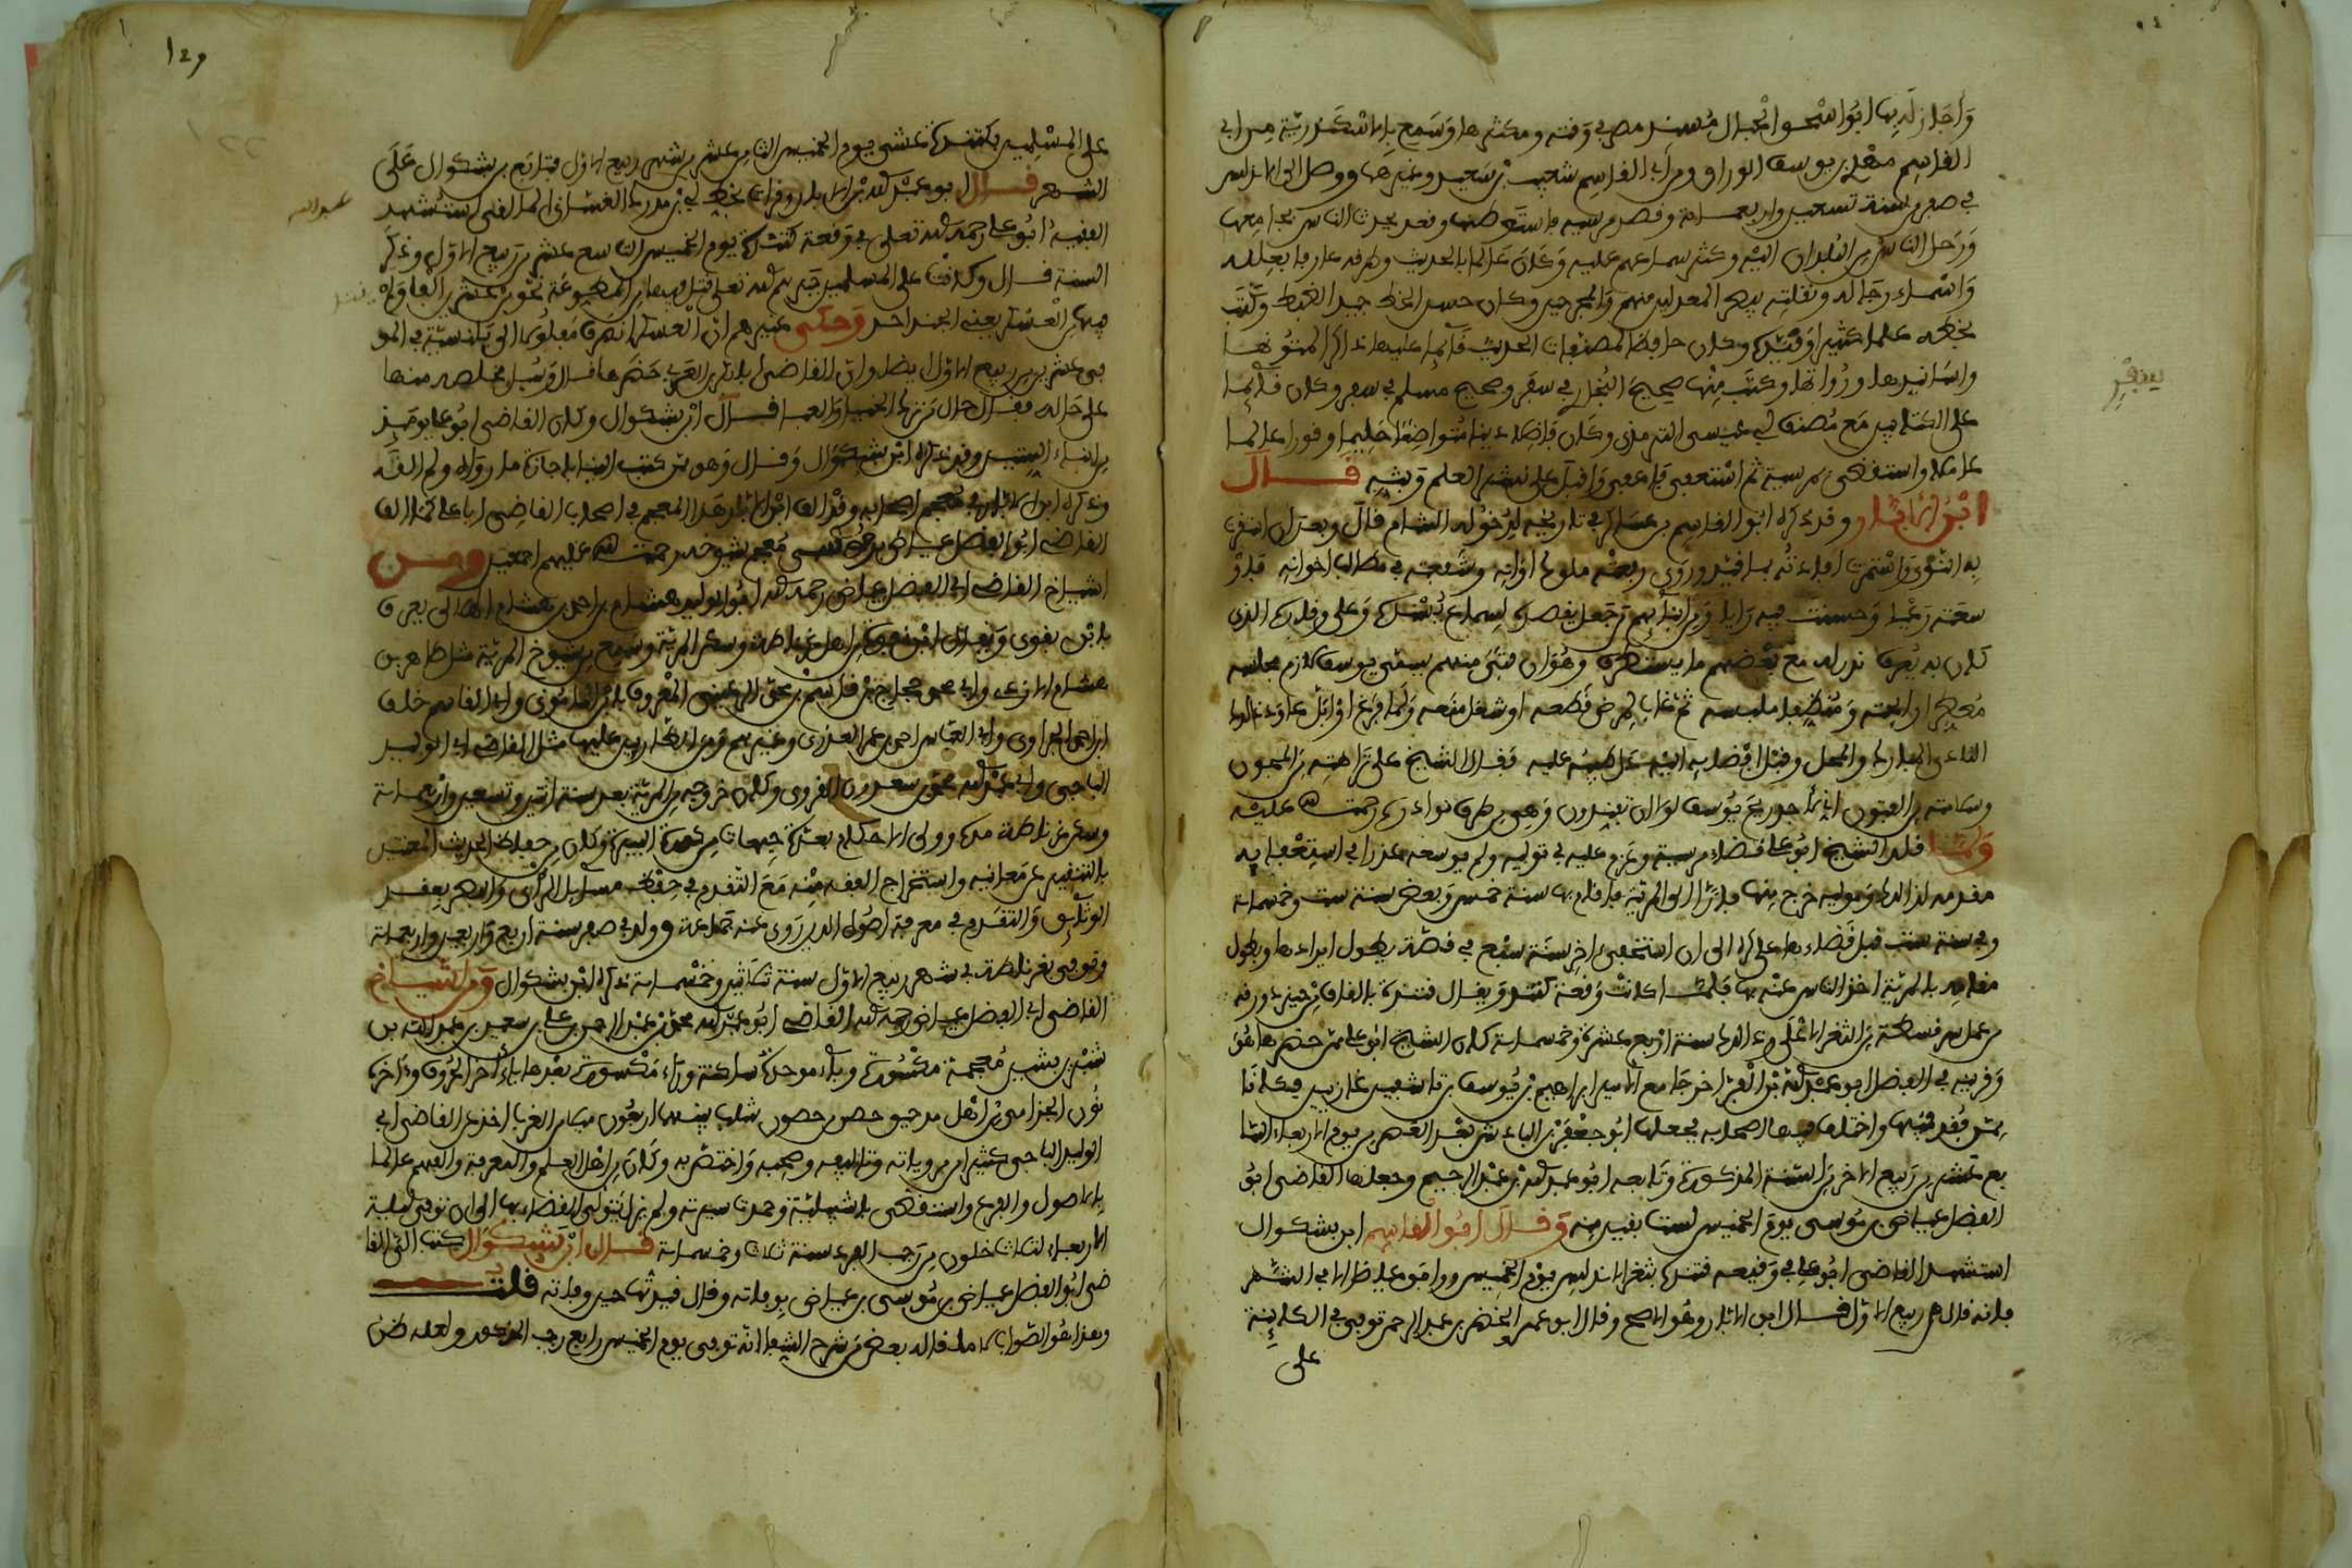 وأجاز له بها ابو اسحق الحبال مسند مصر في وقته ومكثرها وسمع بالاسكندرية من ابي
القاسم مهدي بن يوسف الوراق ومن ابي القاسم شعيب بن سعيد وغيرهما ووصل الى الاندلس
في صفر من سنة تسعين واربعمائة وقصد مرسية فاستوطنها وقعد يحدث الناس بجامعها
ورحل الناس من البلدان اليه وكثر سماعهم عليه وكان عالما بالحديث وطرقه عارفا بعلله
واسماء رجاله ونقلته يبصر المعدلين منهم والمجرحين وكان حسن الخط جيد الضبط وكتب
بخطه علما كثيرا وقيده وكان حافظا لمصنفات الحديث قائما عليها ذاكرا لمتونها
واسانيدها ورواتها وكتب منها صحيح البخاري في سفر وصحيح مسلم في سفر وكان قائما
على الكتابين مع مصنف ابي عيسى الترمذي وكان فاضلا دينا متواضعا حليما وقورا عالما
عاملا واستقضي بمرسية ثم استعفى فاعفي واقبل على نشر العلم وبثه قال
ابن الابار وقد ذكره ابو القاسم بن عساكر في تاريخه لدخوله الشام قال وبعد ان استقرت
به النوى واستمرت افادته بما قيد وروى رفعته ملوك اوانه وشفعته في مطالب اخوانه فاوْ
سعته رعيا وحسنت فيه رايا ومن ابنائهم من جعل يقصده لسماع يسنده وعلى وقاره الذي
كان به يعرف ندر له مع بعضهم ما يستظرف وهو ان فتى منهم يسمى يوسف لازم مجلسه
معطرا رائحته ومنظفا ملبسه ثم غاب لمرض قطعه او شغل منعه ولما فرغ او ابل عاود ذلك
النادي المبارك والمحل وقبل افضائه اليه دل طيبه عليه فقال الشيخ على نزاهته من المجون
وسلامته من الفتون اني لاجد ريح يوسف لولا ان تفندون وهي من طرف نوادره رحمت الله عليه
ولما قلد الشيخ ابو علي قضاء مرسية وعزم عليه في توليه ولم يوسعه عذرا في استعفائه
مقدمه لذلك وموليه خرج منها فارا الى المرية فاقام بها سنة خمس وبعض سنة ست وخمسمائة
وفي سنة ست قبل قضاءها على كره الى ان استعفى اخر سنة سبع في قصة يطول ايرادها وبطول
مقامه بالمرية اخذ الناس عنه بها فلما كانت وقعة كتندة ويقال قتندة بالقاف من حيز دورقة
من عمل سرقسطة من الثغر الاعلى وذلك سنة اربع عشرة وخمسمائة كان الشيخ ابو علي ممن حضرها هو
وقرينه في الفضل ابو عبد الله بن الفراء خرجا مع الامير ابراهيم بن يوسف بن تاشفين غازيين فكانا
ممن فقد فيها واختلف فيها اصحابه فجعلها ابو جعفر بن الباذش بعد الظهر من يوم الاربعاء السا
بع عشر من ربيع الاخر من السنة المذكورة وتابعه ابو عبد الله بن عبد الرحيم وجعلها القاضي ابو
الفضل عياض بن موسى يوم الخميس لست بقين منه وقال ابو القاسم ابن بشكوال
استشهد القاضي ابو علي في وقيعة قتندة بثغر الاندلس يوم الخميس ووافق عياضا الا في الشهر
فانه قال من ربيع الاول قال ابن الابار وهو الاصح وقال ابو عمرو الخضر بن عبد الرحمن توفي في الكائنة
على
يعتفر
١٤٩
على المسلمين بكتندة عشي يوم الخميس الثامن عشر من شهر ربيع الاول فتابع بن بشكوال على
الشهر قال ابو عبد الله بن الابار وقرات بخط ابي بن مدرك الغساني المالقي استشهد
الفقيه ابو علي رحمه الله تعالى في وقعة كتندة يوم الخميس التاسع عشر من ربيع الاول وذكر
السنة قال وكانت على المسلمين جبرهم الله تعالى قتل فيها من المطوعة نحو من عشرين الفا ولم يقتل
فيها من العسكر يعني الجند احد وحكى غيره ان العسكر انصرف مفلولا الى بلنسية في المو
في عشرين من ربيع الاول ايضا وان القاضي ابا بكر بن العربي حضرها قال وسئل مخلصه منها
على حاله فقال حال من ترك الخباء والعبا قال ابن بشكوال وكان القاضي ابو علي يومئذ
من ابناء الستين وقد ذكره ابن بشكوال وقال وهو ممن كتب الينا باجازة ما رواه ولم القه
وذكره ابن الابار في معجم اصحابه وقد الف ابن الابار هذا المعجم في اصحاب القاضي ابي علي كما الف
القاضي ابو الفضل عياض بن موسى معجم شيوخه رحمت الله عليهم اجمعين ومن
اشياخ القاضي ابي الفضل عياض رحمه الله ابو الوليد هشام بن احمد بن هشام الهلالي يعرف
بابن بقوى ويقال ابن بقوة من اهل غرناطة وسكن المرية وسمع من شيوخ المرية مثل طاهر بن
هشام الازدي وابي محمد حجاج بن قاسم بن محمد الرعيني المعروف بابن المأموني وابي القاسم خلف
ابن احمد الجراوي وابي العباس احمد بن عمر العذري وغيرهم ومن الطارئين عليها مثل القاضي ابي الوليد
الباجي وابي عبد الله محمد بن سعدون القروي وكان خروجه من المرية بعد سنة اثنين وتسعين واربعمائة
وسكن غرناطة مدة وولي الاحكام بعدة جهات من كورة البيرة وكان من حفاظ الحديث المعتنين
بالتنقير عن معانيه واستخراج الفقه منه مع التقدم في حفظ مسائل الراي والبصر بعقد
الوثائق والتقدم في معرفة اصول الدين روى عنه جماعة وولد في صفر سنة اربع واربعين واربعمائة
وتوفي بغرناطة في شهر ربيع الاول سنة ثلاثين وخمسمائة ذكره ابن بشكوال ومن اشياخ
القاضي ابي الفضل عياض رحمه الله القاضي ابو عبد الله محمد بن عبد الرحمن بن علي بن سعيد بن عبد الله بن
شبرين بشين معجمة مكسورة وباء موحدة ساكنة وراء مكسورة بعدها ياء اخر الحروف وءاخره
نون الجذامي من اهل مرجيق حصن من حصون شلب بينهما اربعون ميلا من الغرب اخذ عن القاضي ابي
الوليد الباجي كثيرا من روايته وتواليفه وصحبه واختص به وكان من اهل العلم والمعرفة والفهم عالما
بالاصول والفروع واستقضي باشبيلية وحمدت سيرته ولم يزل يتولى القضاء بها الى ان توفي ليلة
الاربعاء لثلاث خلون من رجب الفرد سنة ثلاث وخمسمائة قال ابن بشكوال كتب الي القا
ضي ابو الفضل عياض بن موسى بن عياض بوفاته وقال قيدتها حين وفاته قلت
وهذا هو الصواب لا ما قاله بعض من شرح الشفا انه توفي يوم الخميس رابع رجب المذكور ولعله ظن
عبد الله